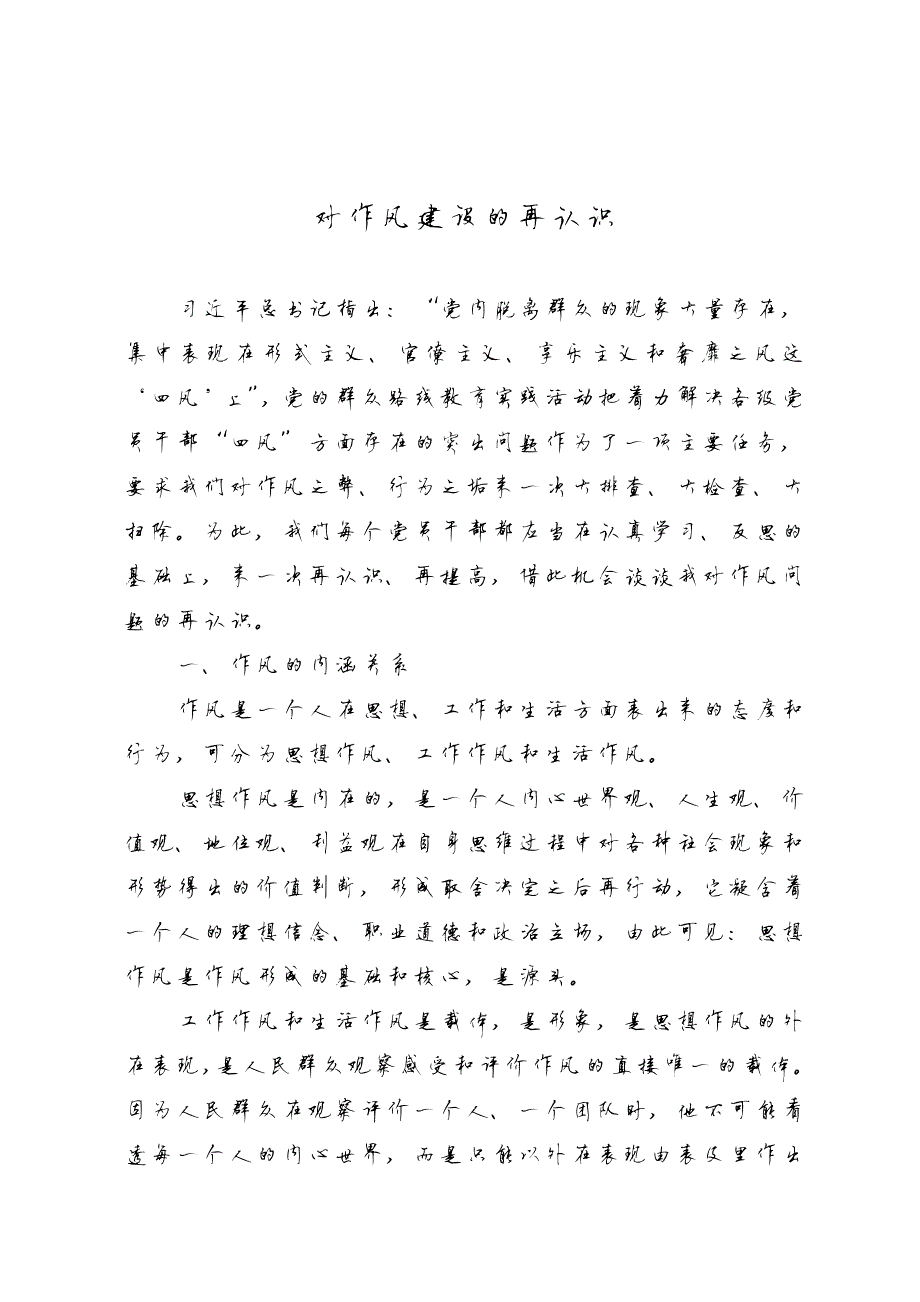 对作风建设的再认识
习近平总书记指出：“党内脱离群众的现象大量存在，
集中表现在形式主义、官僚主义、享乐主义和奢靡之风这
‘四风’上”，党的群众路线教育实践活动把着力解决各级党
员干部“四风”方面存在的突出问题作为了一项主要任务，
要求我们对作风之弊、行为之垢来一次大排查、大检查、大
扫除。为此，我们每个党员干部都应当在认真学习、反思的
基础上，来一次再认识、再提高，借此机会谈谈我对作风问
题的再认识。
一、作风的内涵关系
作风是一个人在思想、工作和生活方面表出来的态度和
行为，可分为思想作风、工作作风和生活作风。
思想作风是内在的，是一个人内心世界观、人生观、价
值观、地位观、利益观在自身思维过程中对各种社会现象和
形势得出的价值判断，形成取舍决定之后再行动，它凝含着
一个人的理想信念、职业道德和政治立场，由此可见：思想
作风是作风形成的基础和核心，是源头。
工作作风和生活作风是载体，是形象，是思想作风的外
在表现，是人民群众观察感受和评价作风的直接唯一的载体。
因为人民群众在观察评价一个人、一个团队时，他不可能看
透每一个人的内心世界，而是只能以外在表现由表及里作出